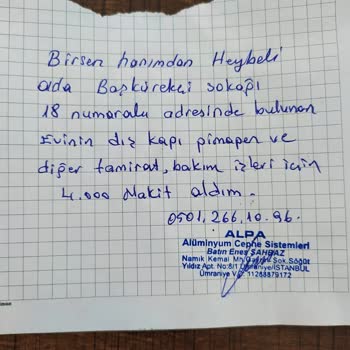 Birsen hanımdan Heybeli
ada Başkürekçi sokağı
18 numaralı adresinde bulunan
Evinin dış kapı pimapen ve
diğer tamirat, bakım işleri için
4.000 Nakit aldım.
0501.266.10.96.
ALPA
Alüminyum Cephe Sistemleri
Batın Enes ŞAHBAZ
Namık Kemal Mh. Sok. Söğüt
Yıldız Apt. No:8/1 Ümraniye/İSTANBUL
Ümraniye V. 11268879172